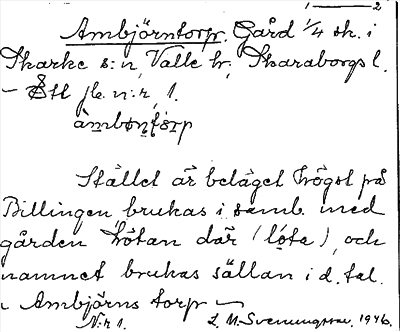 1 — 2
Ambjörntorp. Gård 1/4 sk. i
Skarke s:n, Valle hr, Skaraborgs l.
– Stl jb. n:r, 1.
Stället är beläget högst på
Billingen brukas i samb. med
gården Lötan där (lö̀ta), och
namnet brukas sällan i d. tal.
~ Ambjörns torp ~
N:r 1. L. M. Svenungsson. 1946.